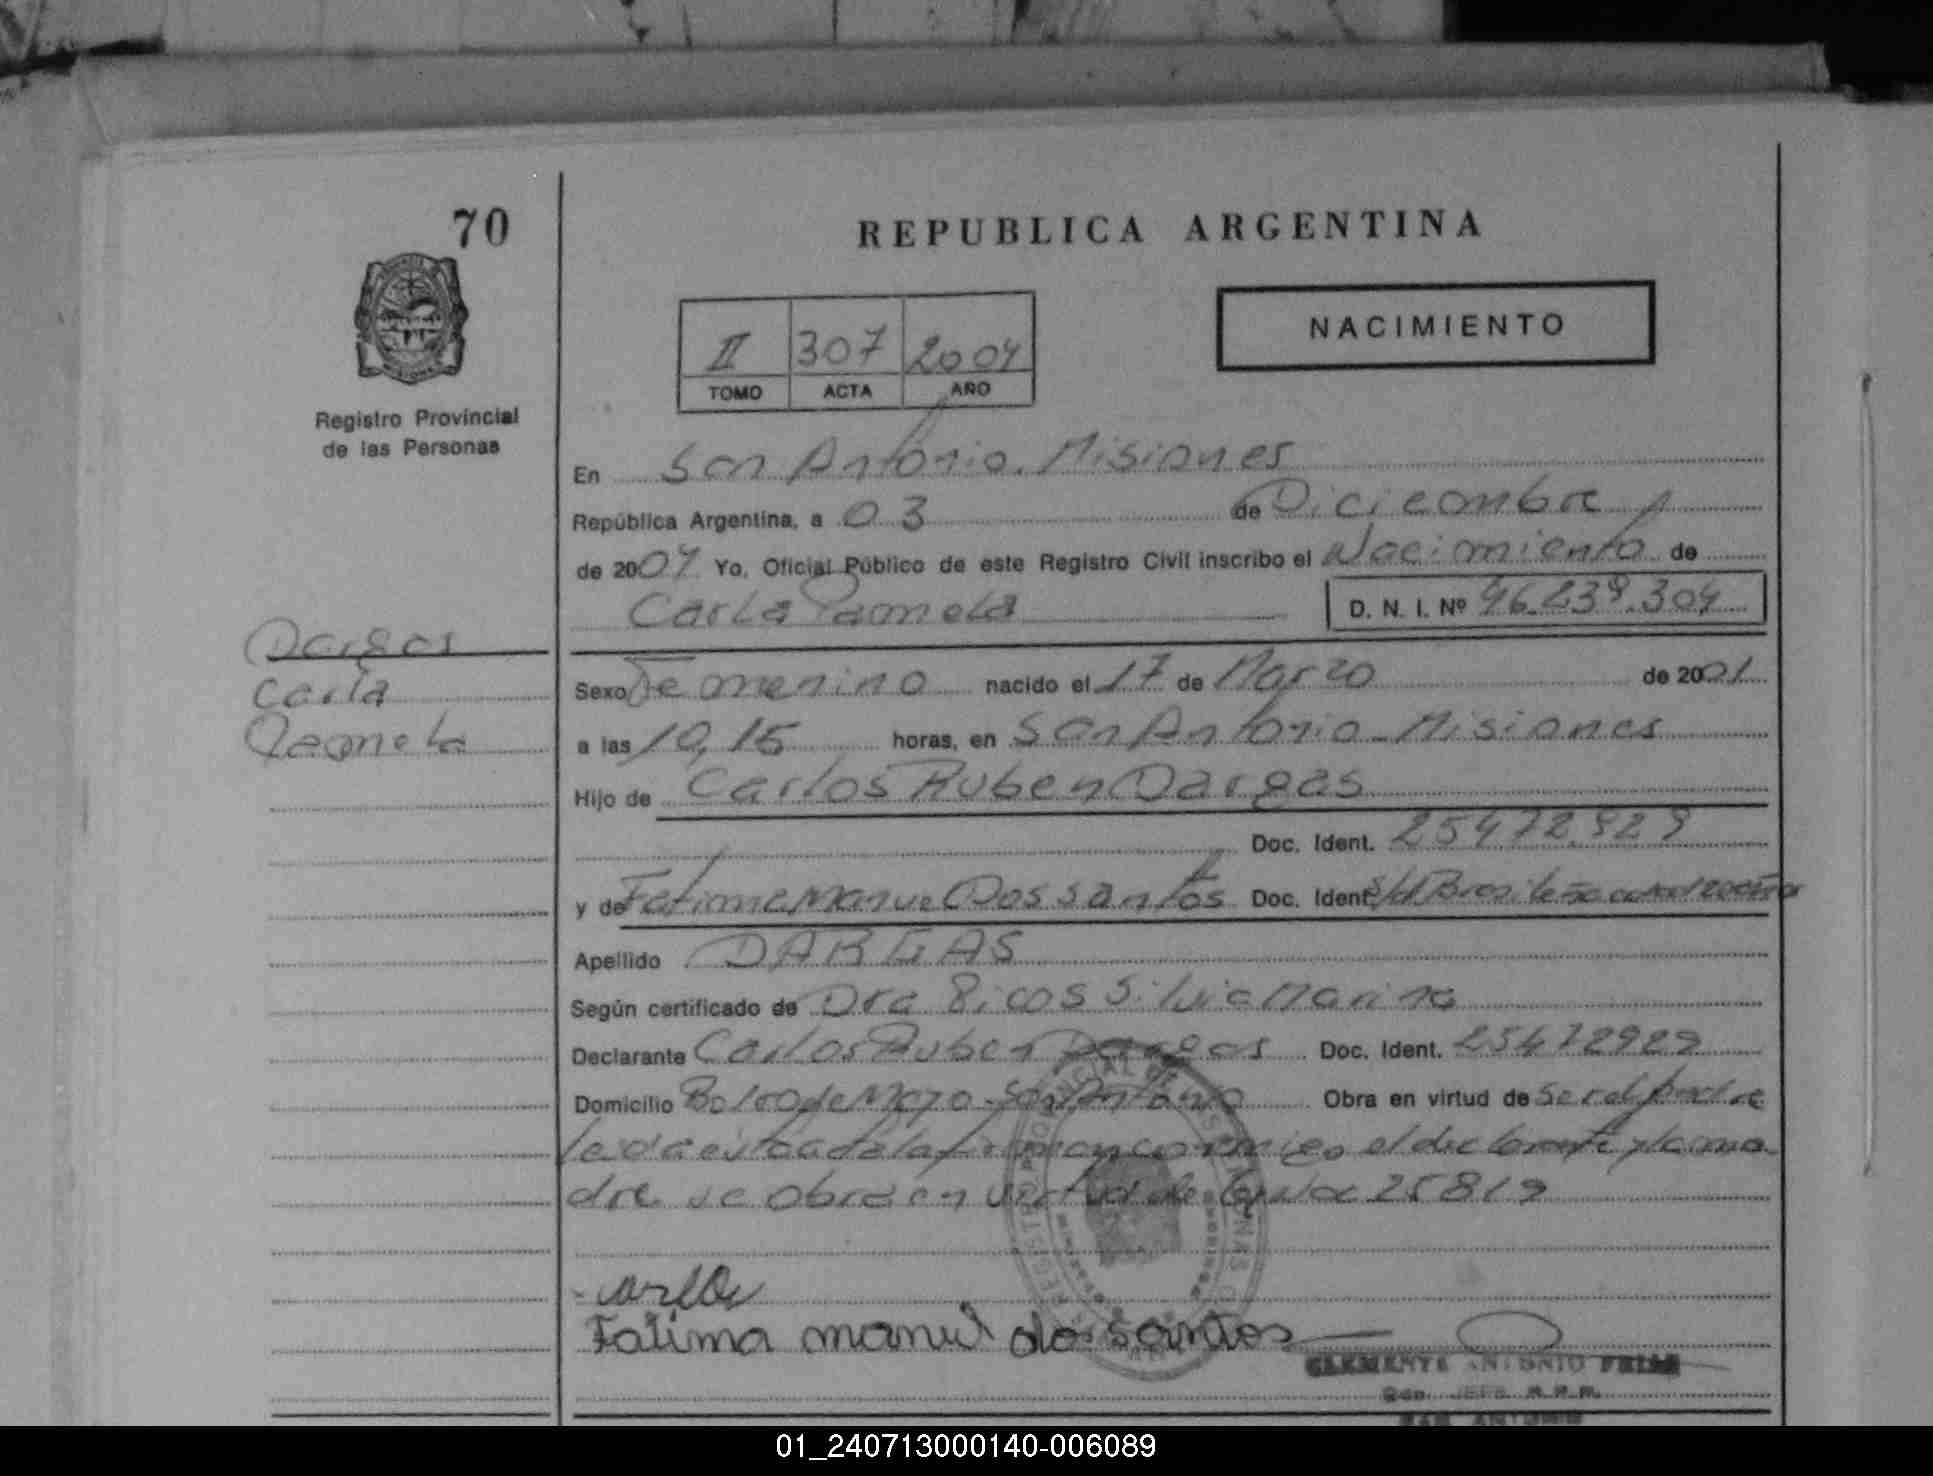 70
REPUBLICA ARGENTINA
NACIMIENTO
II 307 2004
TOMO ACTA AÑO
Registro Provincial
de las Personas
En San Antonio. Misiones
República Argentina, a 03 de Diciembre
de 2004 Yo, Oficial Público de este Registro Civil inscribo el Nacimiento de
Carla Pamela D. N. I. Nº 46.239.304
Dargas
Carla
Pamela
Sexo Femenino nacido el 17 de Marzo de 2001
a las 10,15 horas, en San Antonio - Misiones
Hijo de Carlos Ruben Dargas
Doc. Ident. 25472.929
y de Fatima Manue Dos santos Doc. Ident. S/d Brasileña
Apellido DARGAS
Según certificado de Dra Ricos Silvia Marina
Declarante Carlos Ruben Dargas Doc. Ident. 25472929
Domicilio San Antonio Obra en virtud de ser el padre
el declarante y la ma
dre se obra en virtud de 25819
Fatima manul do santos
CLEMENTE ANTONIO
JEFE R.P.P.
SAN ANTONIO
01_240713000140-006089